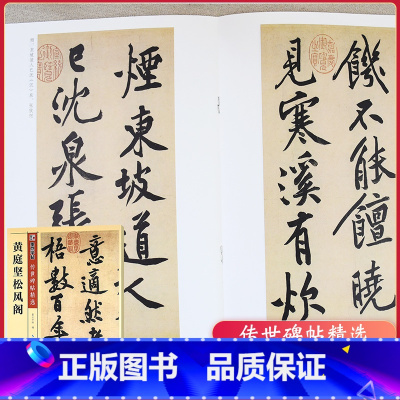 饑不能饘曉
見寒溪有炊
煙東坡道人
已沈泉張
意適然老
梧數百年
黄庭坚松风阁
传世碑帖精选
传世碑帖精选